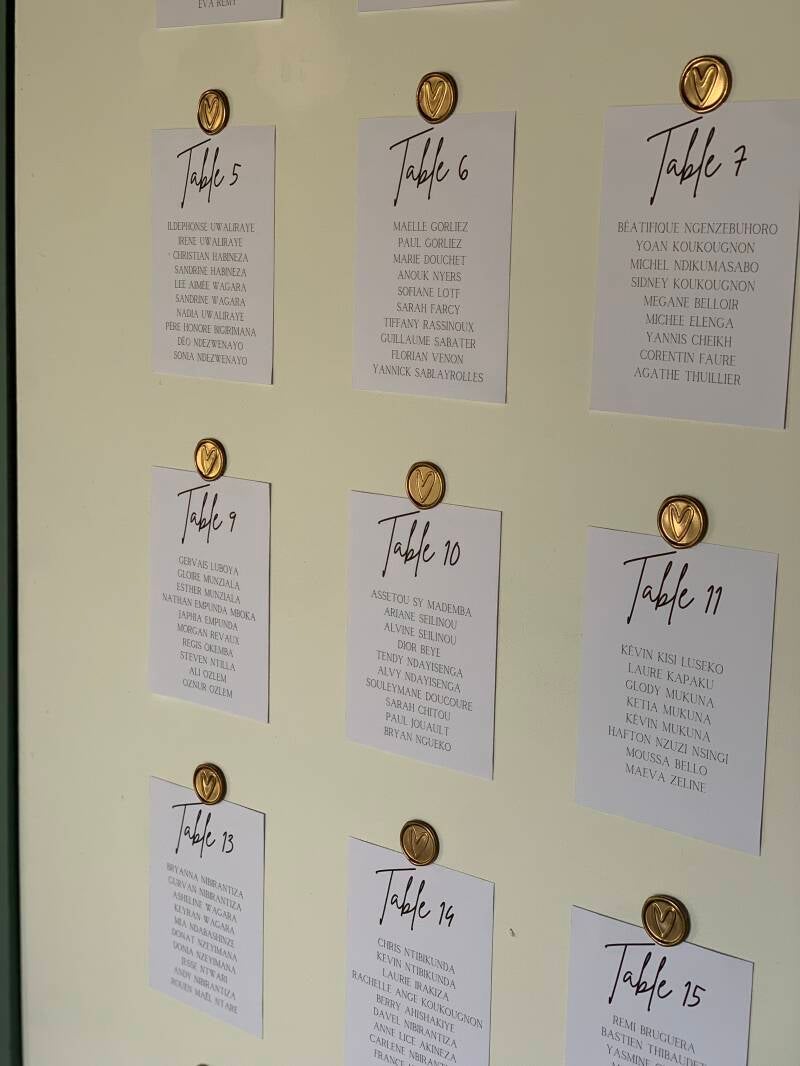 EVA REMY
Table 5
ILDEPHONSE UWALIRAYE
IRENE UWALIRAYE
CHRISTIAN HABINEZA
SANDRINE HABINEZA
LEE AIMÉE WAGARA
SANDRINE WAGARA
NADIA UWALIRAYE
PÈRE HONORE BIGIRIMANA
DÉO NDEZWENAYO
SONIA NDEZWENAYO
Table 6
MAELLE GORLIEZ
PAUL GORLIEZ
MARIE DOUCHET
ANOUK NYERS
SOFIANE LOTF
SARAH FARCY
TIFFANY RASSINOUX
GUILLAUME SABATER
FLORIAN VENON
YANNICK SABLAYROLLES
Table 7
BÉATIFIQUE NGENZEBUHORO
YOAN KOUKOUGNON
MICHEL NDIKUMASABO
SIDNEY KOUKOUGNON
MEGANE BELLOIR
MICHEE ELENGA
YANNIS CHEIKH
CORENTIN FAURE
AGATHE THUILLIER
Table 9
GERVAIS LUBOYA
GLOIRE MUNZIALA
ESTHER MUNZIALA
NATHAN EMPUNDA MBOKA
JAPHIA EMPUNDA
MORGAN REVAUX
REGIS OKEMBA
STEVEN NTILLA
ALI OZLEM
OZNUR OZLEM
Table 10
ASSETOU SY MADEMBA
ARIANE SEILINOU
ALVINE SEILINOU
DIOR BEYE
TENDY NDAYISENGA
ALVY NDAYISENGA
SOULEYMANE DOUCOURE
SARAH CHITOU
PAUL JOUAULT
BRYAN NGUEKO
Table 11
KÉVIN KISI LUSEKO
LAURE KAPAKU
GLODY MUKUNA
KETIA MUKUNA
KÉVIN MUKUNA
HAFTON NZUZI NSINGI
MOUSSA BELLO
MAEVA ZELINE
Table 13
BRYANNA NIBIRANTIZA
GURVAN NIBIRANTIZA
ASHELINE WAGARA
KEYRAN WAGARA
MIA NDABASHINZE
DONAT NZEYIMANA
DONIA NZEYIMANA
JESSE NTWARI
ANDY NIBIRANTIZA
ROUEN MAËL NTARE
Table 14
CHRIS NTIBIKUNDA
KEVIN NTIBIKUNDA
LAURIE IRAKIZA
RACHELLE ANGE KOUKOUGNON
BERRY AHISHAKIYE
DAVEL NIBIRANTIZA
ANNE LICE AKINEZA
CARLENE NIBIRAN
FRANCE
Table 15
REMI BRUGUERA
BASTIEN THIBAUDET
YASMINE